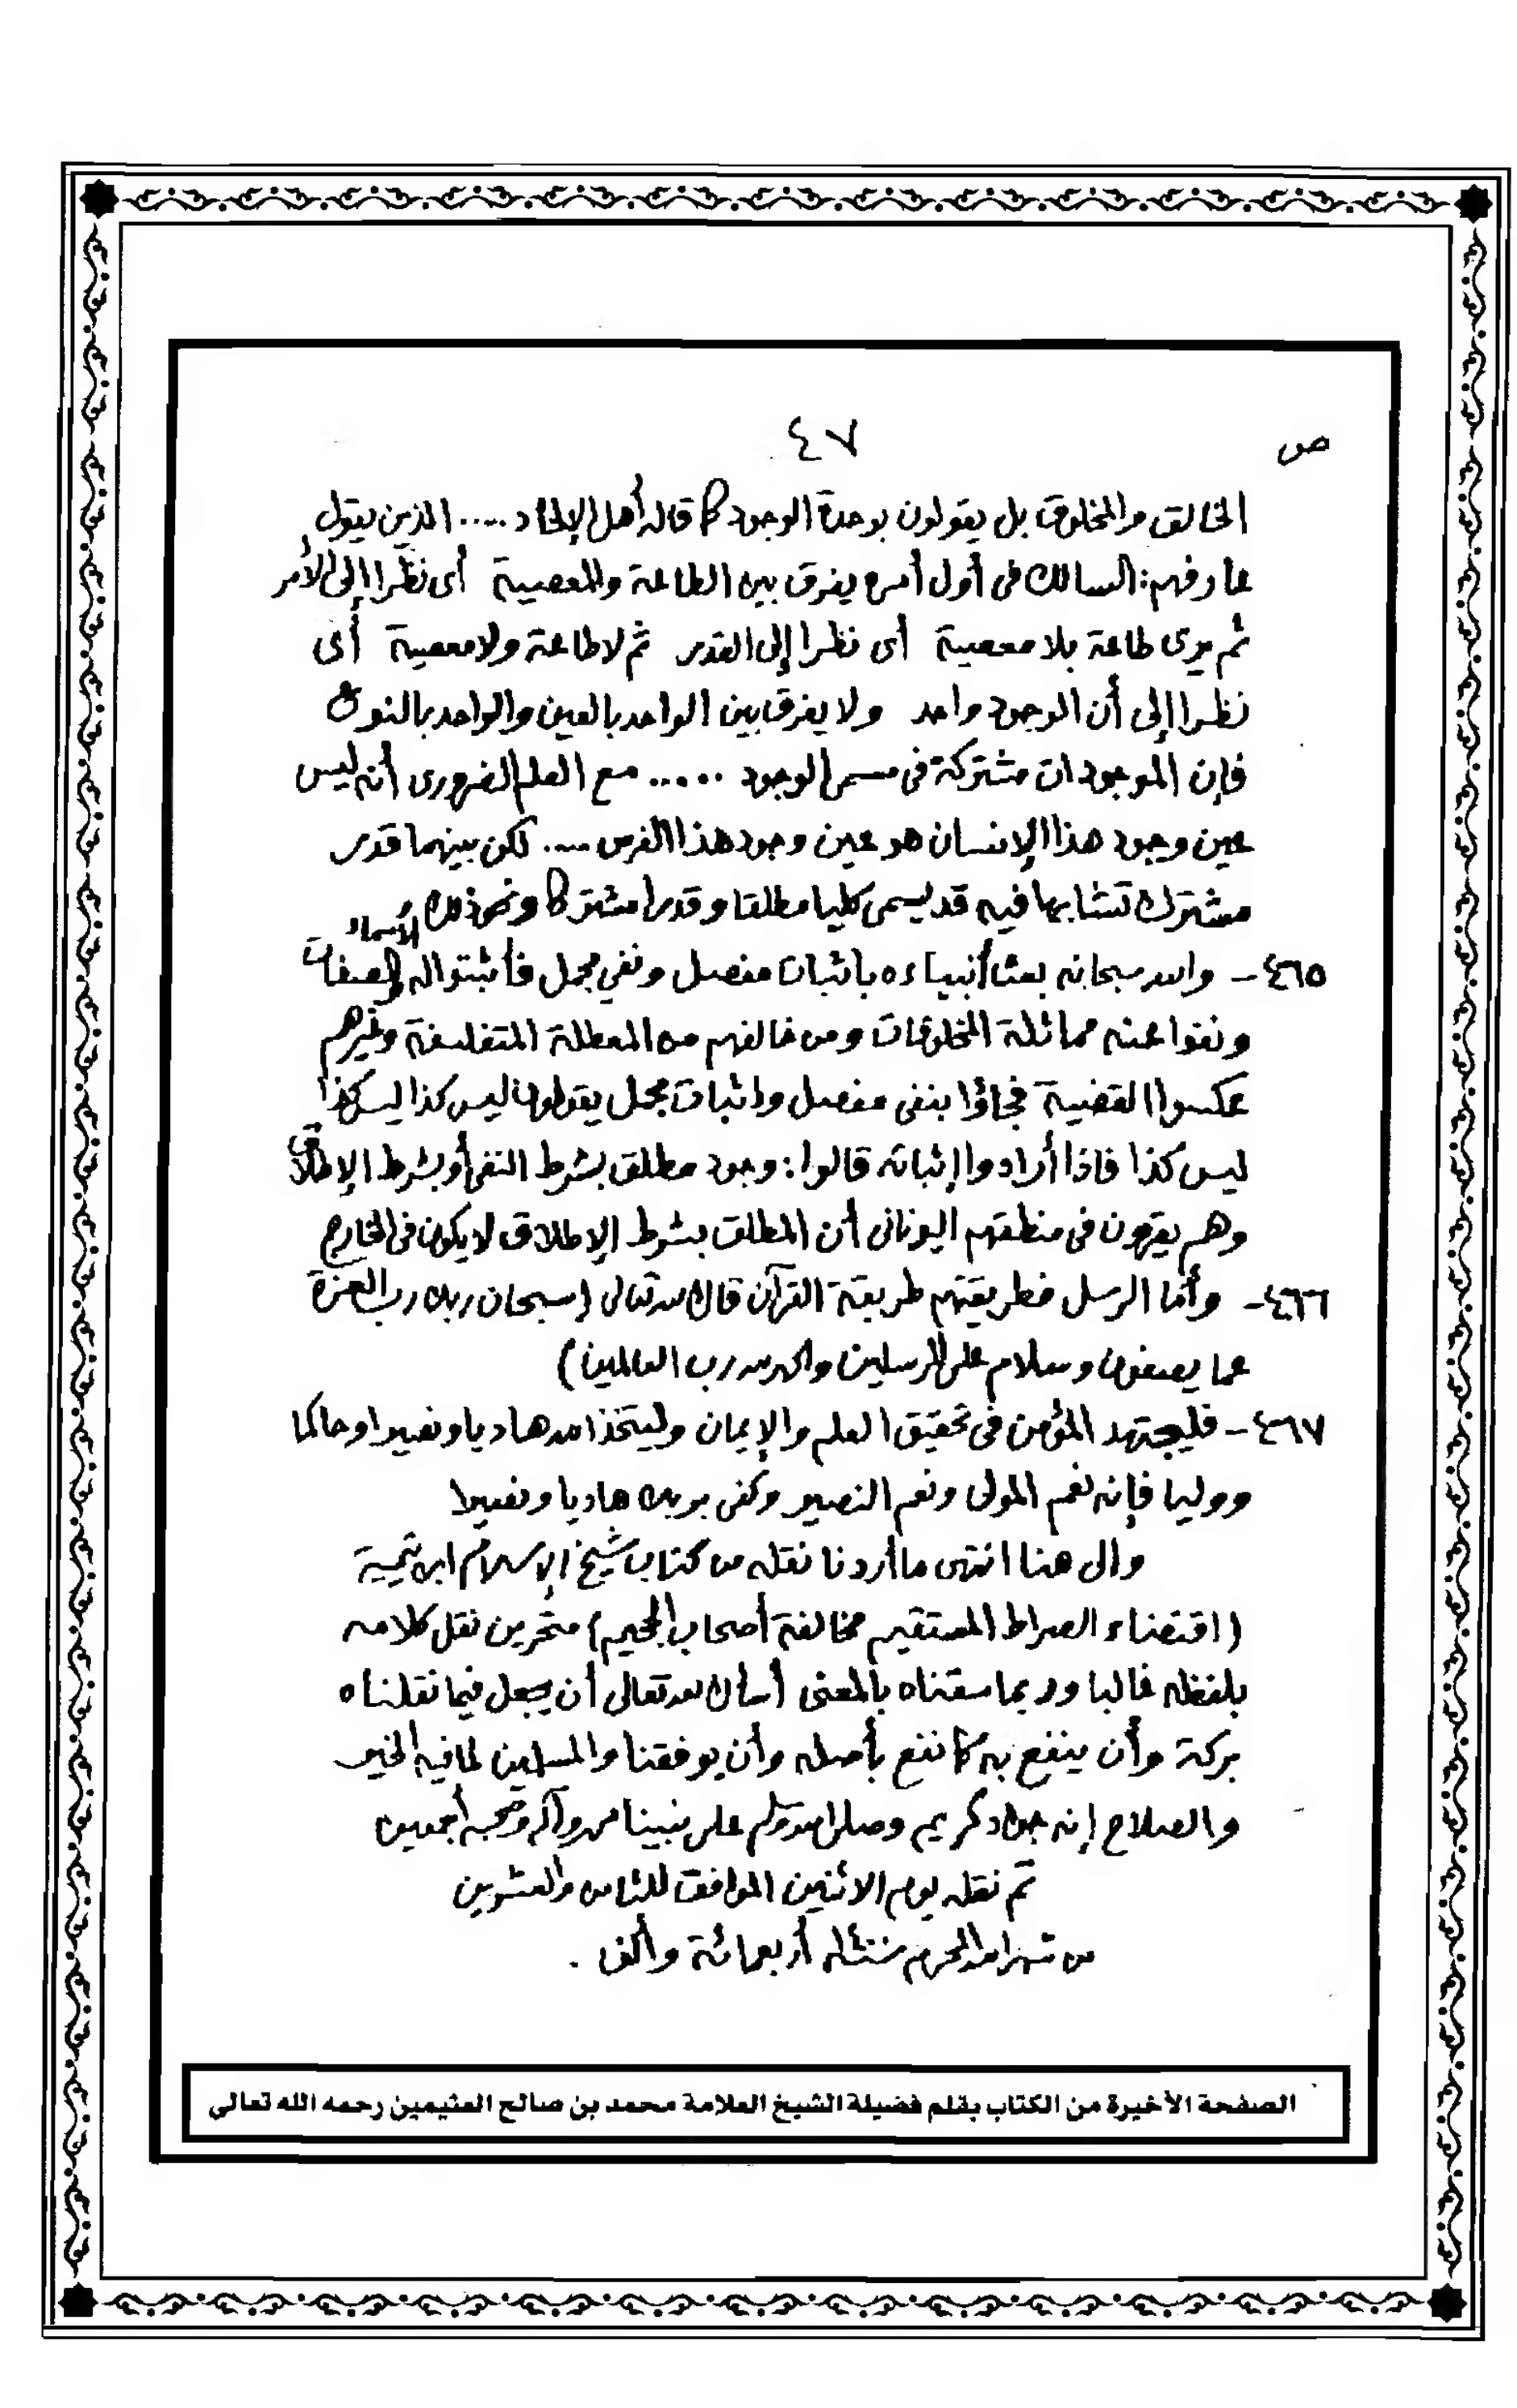 ص ٤٧
الخالق والمخلوق بل يقولون بوحدة الوجود كما قاله أهل الإلحاد ..... الذين يقول
عارفهم: السالك في أول أمره يفرق بين الطاعة والمعصية أي نظرا إلى الأمر
ثم يرى طاعة بلا معصية أي نظرا إلى القدر ثم لا طاعة ولا معصية أي
نظرا إلى أن الوجود واحد ولا يفرق بين الواحد بالعين والواحد بالنوع
فإن الموجودات مشتركة في مسمى الوجود ...... مع العلم الضروري أنه ليس
عين وجود هذا الإنسان هو عين وجود هذا الفرس ..... لكن بينهما قدر
مشترك تشابها فيه قد يسمى كليا مطلقا وقدرا مشتركا ونحو ذلك
٤٦٥ - والله سبحانه بعث أنبياءه بإثبات مفصل ونفي مجمل فأثبتوا له الأسماء والصفات
ونفوا عنه مماثلة المخلوقات ومن خالفهم من المعطلة المتفلسفة وغيرهم
عكسوا القضية فجاؤا بنفي مفصل وإثبات مجمل يقولون ليس كذا ليس كذا
ليس كذا فإذا أرادوا إثباته قالوا: وجود مطلق بشرط النفي أو بشرط الإطلاق
وهم يقرون في منطقهم اليوناني أن المطلق بشرط الإطلاق لا يكون في الخارج
٤٦٦ - وأما الرسل فطريقتهم طريقة القرآن قال الله تعالى (سبحان ربك رب العزة
عما يصفون وسلام على المرسلين والحمد لله رب العالمين)
٤٦٧ - فليجتهد المؤمن في تحقيق العلم والإيمان وليتخذ الله هاديا ونصيرا وحاكما
ووليا فإنه نعم المولى ونعم النصير وكفى بربك هاديا ونصيرا
وإلى هنا انتهى ما أردنا نقله من كتاب شيخ الإسلام ابن تيمية
(اقتضاء الصراط المستقيم مخالفة أصحاب الجحيم) متحرين نقل كلامه
بلفظه غالبا وربما سقناه بالمعنى أسأل الله تعالى أن يجعل فيما نقلناه
بركة وأن ينفع به كما نفع بأصله وأن يوفقنا والمسلمين لما فيه الخير
والصلاح إنه جواد كريم وصلى الله وسلم على نبينا محمد وآله وصحبه أجمعين
تم نقله يوم الاثنين الموافق للثامن والعشرين
من شهر الله المحرم سنة أربعمائة وألف .
الصفحة الأخيرة من الكتاب بقلم فضيلة الشيخ العلامة محمد بن صالح العثيمين رحمه الله تعالى